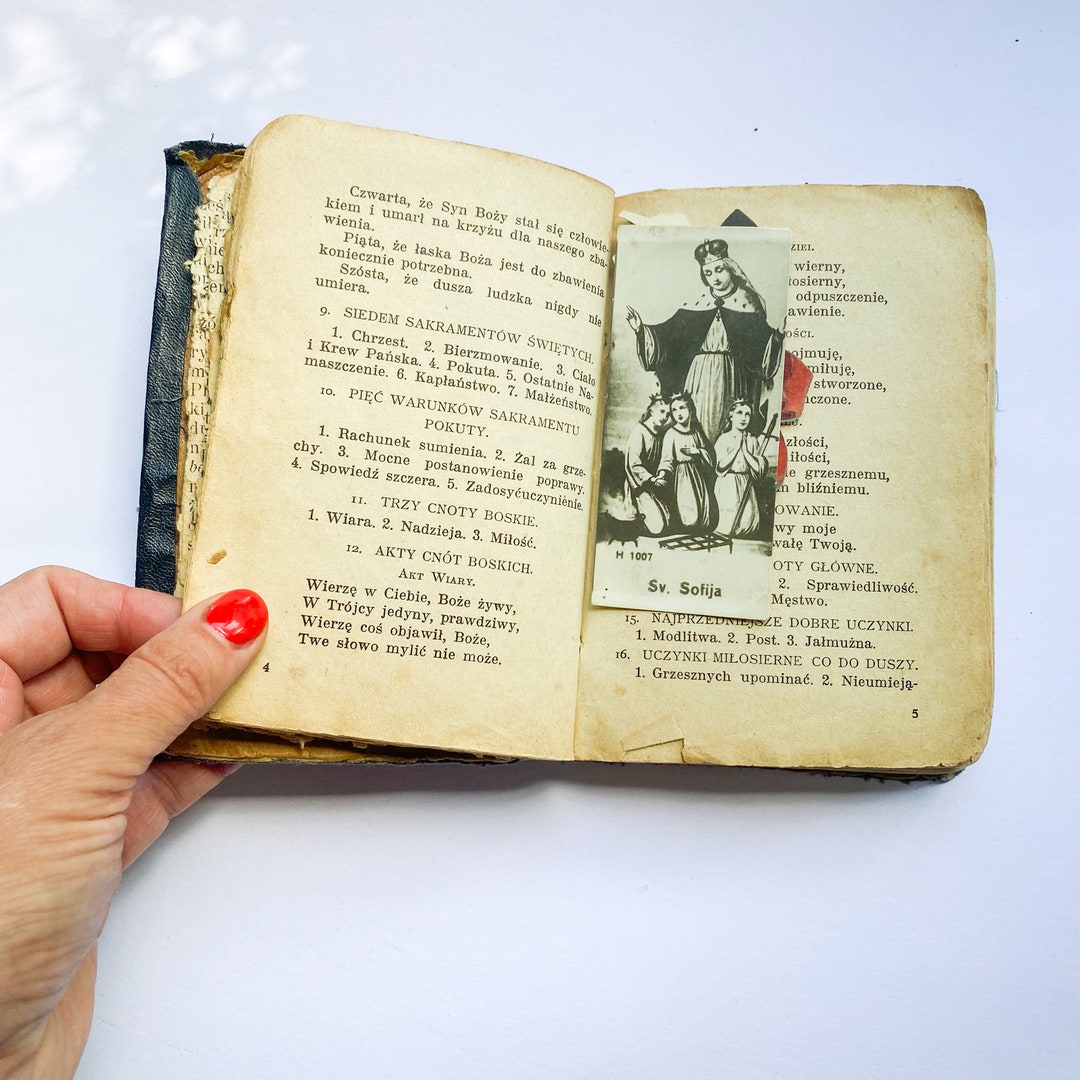 Czwarta, że Syn Boży stał się człowie-
kiem i umarł na krzyżu dla naszego zba-
wienia.
Piąta, że łaska Boża jest do zbawienia
koniecznie potrzebna.
Szósta, że dusza ludzka nigdy nie
umiera.
9. SIEDEM SAKRAMENTÓW ŚWIĘTYCH.
1. Chrzest. 2. Bierzmowanie. 3. Ciało
i Krew Pańska. 4. Pokuta. 5. Ostatnie Na-
maszczenie. 6. Kapłaństwo. 7. Małżeństwo.
10. PIĘĆ WARUNKÓW SAKRAMENTU
POKUTY.
1. Rachunek sumienia. 2. Żal za grze-
chy. 3. Mocne postanowienie poprawy.
4. Spowiedź szczera. 5. Zadosyćuczynienie.
11. TRZY CNOTY BOSKIE.
1. Wiara. 2. Nadzieja. 3. Miłość.
12. AKTY CNÓT BOSKICH.
AKT WIARY.
Wierzę w Ciebie, Boże żywy,
W Trójcy jedyny, prawdziwy,
Wierzę coś objawił, Boże,
Twe słowo mylić nie może.
4
H 1007
Sv. Sofija
wierny,
odpuszczenie,
stworzone,
grzesznemu,
bliźniemu.
moje
Twoją.
GŁÓWNE.
2. Sprawiedliwość.
Męstwo.
15. NAJPRZEDNIEJSZE DOBRE UCZYNKI.
1. Modlitwa. 2. Post. 3. Jałmużna.
16. UCZYNKI MIŁOSIERNE CO DO DUSZY.
1. Grzesznych upominać. 2. Nieumieją-
5